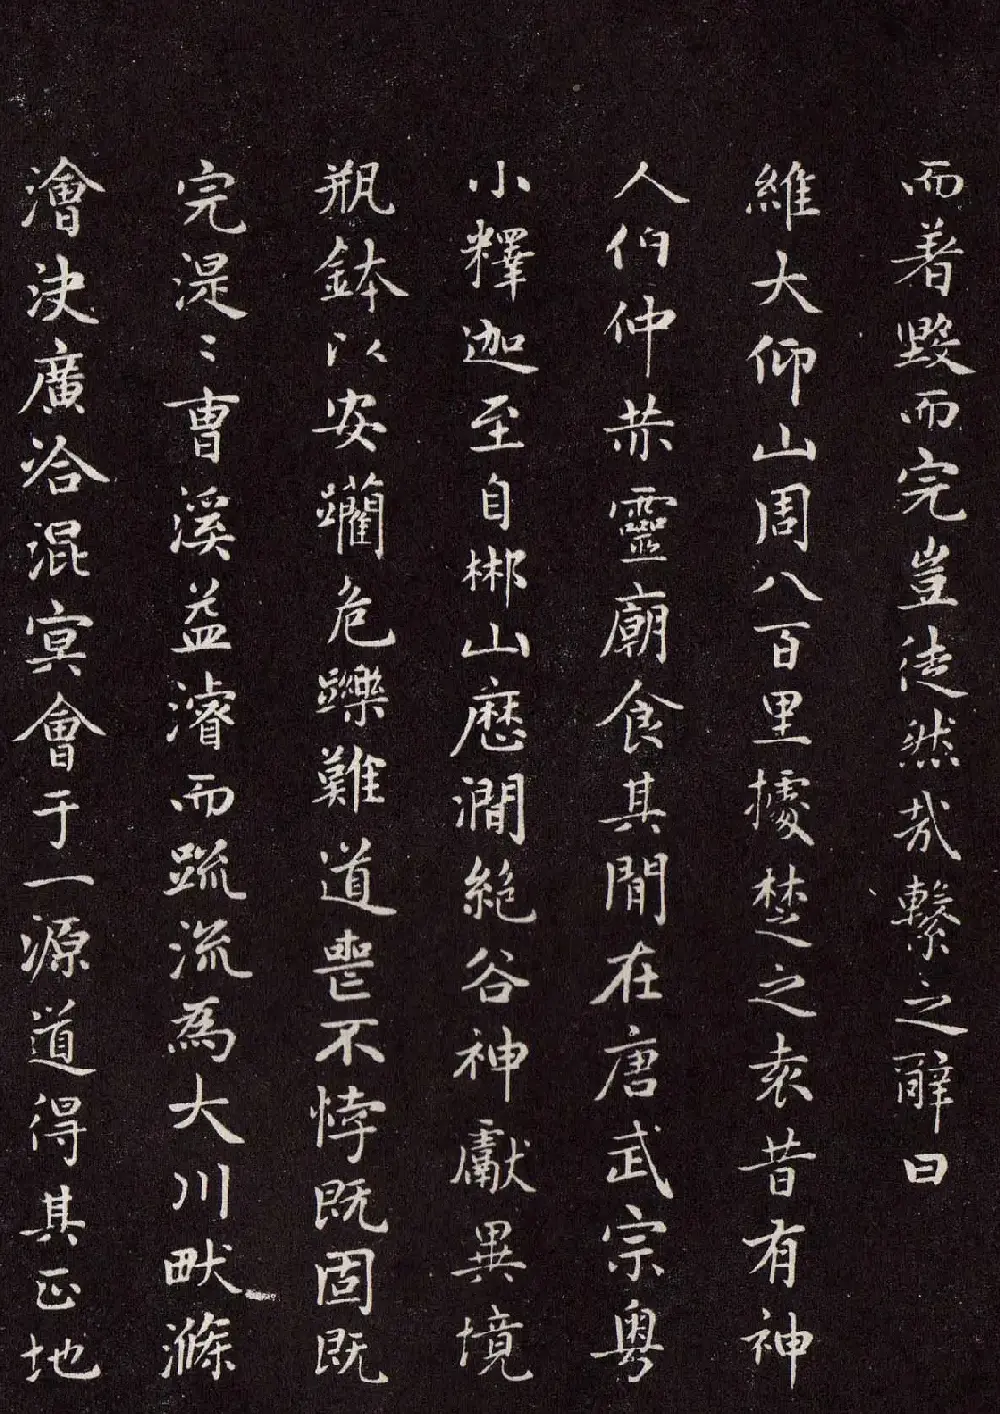 而著毀而完豈徒然哉繫之辭曰
維大仰山周八百里據楚之袁昔有神
人伯仲恭靈廟食其間在唐武宗粵
小釋迦至自郴山歷澗絕谷神獻異境
瓶鉢以安躪危躒難道喪不悖既固既
完湜〻曹溪益濬而疏流為大川畎滌
澮決廣洽混冥會于一源道得其正地